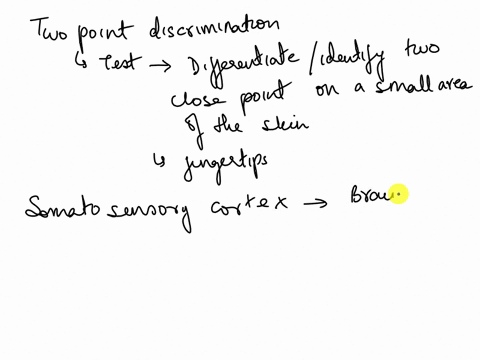 Two point discrimination
↳ Test → Differentiate/identify two
close point on a small area
of the skin
↳ fingertips
Somatosensory cortex →